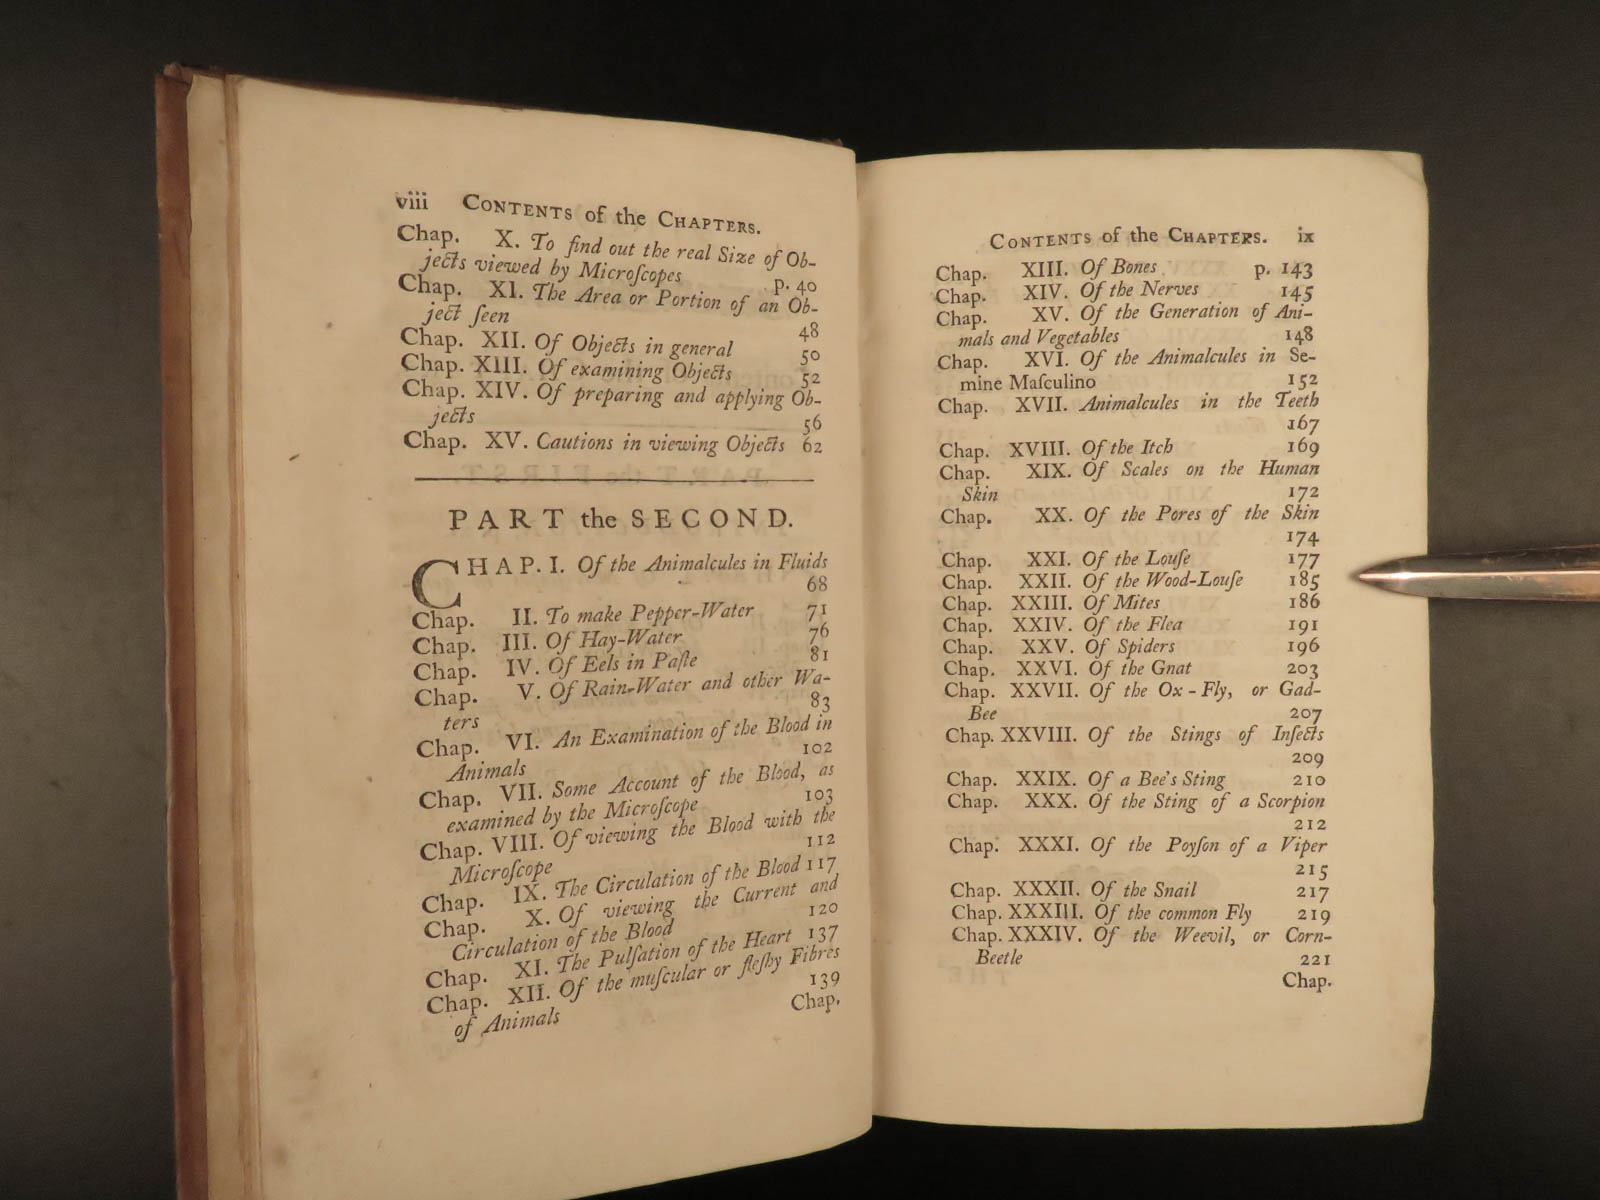 viii CONTENTS of the CHAPTERS.
Chap. X. To find out the real Size of Ob-
jects viewed by Microſcopes p. 40
Chap. XI. The Area or Portion of an Ob-
ject ſeen 48
Chap. XII. Of Objects in general 50
Chap. XIII. Of examining Objects 52
Chap. XIV. Of preparing and applying Ob-
jects 56
Chap. XV. Cautions in viewing Objects 62
PART the SECOND.
CHAP. I. Of the Animalcules in Fluids
68
Chap. II. To make Pepper-Water 71
Chap. III. Of Hay-Water 76
Chap. IV. Of Eels in Paſte 81
Chap. V. Of Rain-Water and other Wa-
ters 83
Chap. VI. An Examination of the Blood in
Animals 102
Chap. VII. Some Account of the Blood, as
examined by the Microſcope 103
Chap. VIII. Of viewing the Blood with the
Microſcope 112
Chap. IX. The Circulation of the Blood 117
Chap. X. Of viewing the Current and
Circulation of the Blood 120
Chap. XI. The Pulſation of the Heart 137
Chap. XII. Of the muſcular or fleſhy Fibres
of Animals 139
Chap.
CONTENTS of the CHAPTERS. ix
Chap. XIII. Of Bones p. 143
Chap. XIV. Of the Nerves 145
Chap. XV. Of the Generation of Ani-
mals and Vegetables 148
Chap. XVI. Of the Animalcules in Se-
mine Maſculino 152
Chap. XVII. Animalcules in the Teeth
167
Chap. XVIII. Of the Itch 169
Chap. XIX. Of Scales on the Human
Skin 172
Chap. XX. Of the Pores of the Skin
174
Chap. XXI. Of the Louſe 177
Chap. XXII. Of the Wood-Louſe 185
Chap. XXIII. Of Mites 186
Chap. XXIV. Of the Flea 191
Chap. XXV. Of Spiders 196
Chap. XXVI. Of the Gnat 203
Chap. XXVII. Of the Ox-Fly, or Gad-
Bee 207
Chap. XXVIII. Of the Stings of Inſects
209
Chap. XXIX. Of a Bee's Sting 210
Chap. XXX. Of the Sting of a Scorpion
212
Chap. XXXI. Of the Poyſon of a Viper
215
Chap. XXXII. Of the Snail 217
Chap. XXXIII. Of the common Fly 219
Chap. XXXIV. Of the Weevil, or Corn-
Beetle 221
Chap.